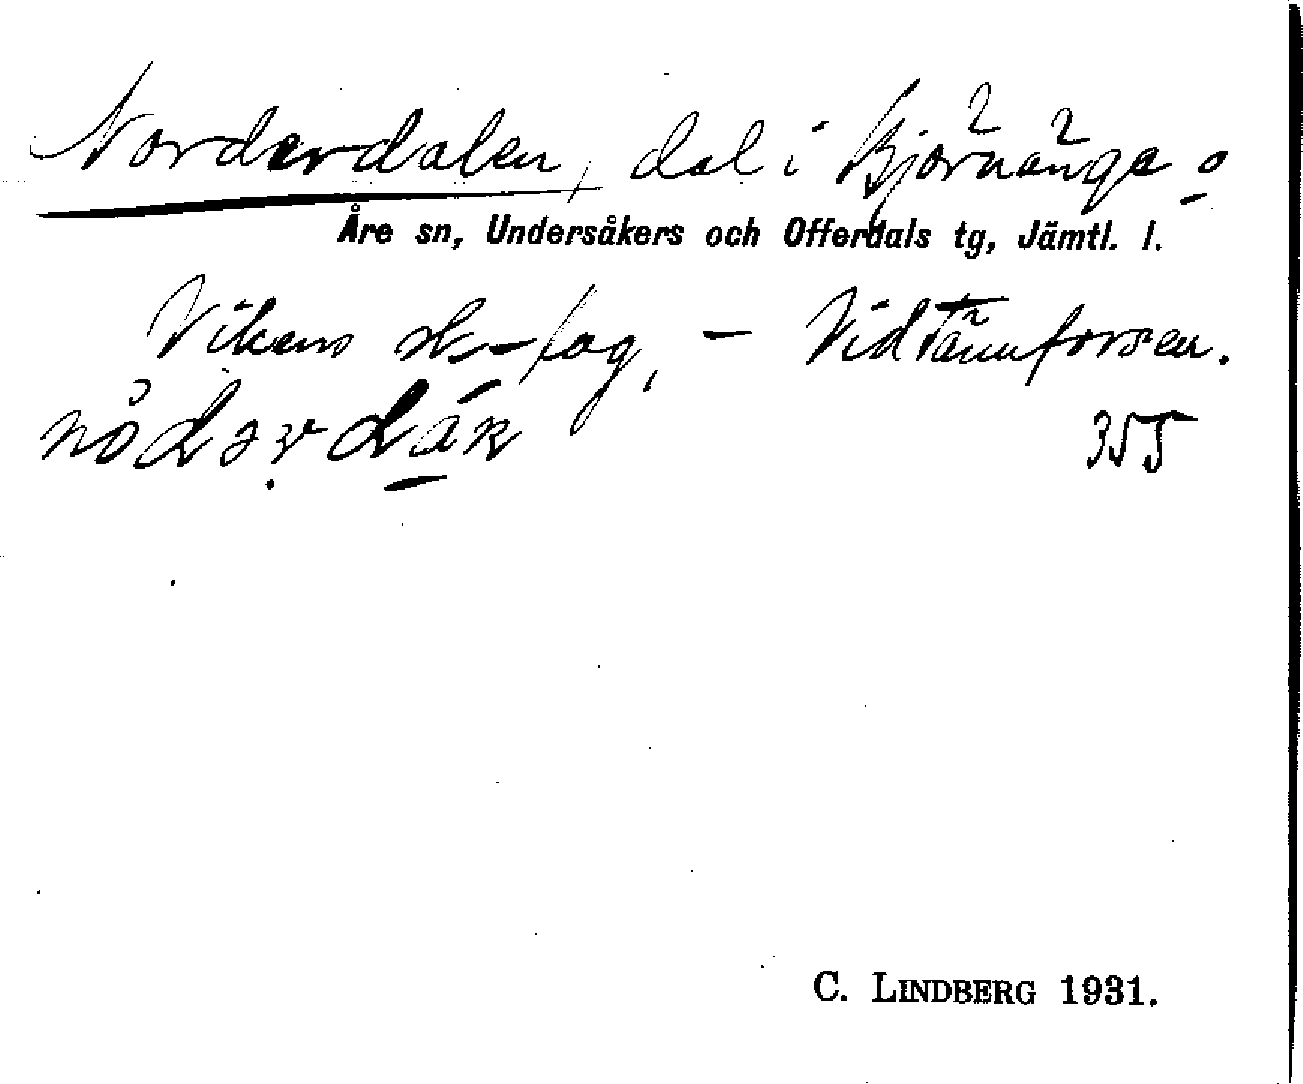 Norderdalen, dal i Björnänge o
Åre sn, Undersåkers och Offerdals tg, Jämtl. l.
Vikens sk-lag, - Vid Tännforsen.
355
C. LINDBERG 1931.